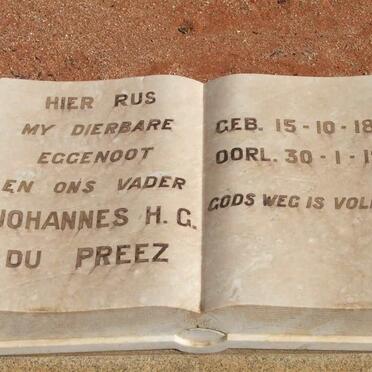 HIER RUS
MY DIERBARE
EGGENOOT
EN ONS VADER
JOHANNES H. G.
DU PREEZ
GEB. 15-10-18
OORL. 30-1-1
GODS WEG IS